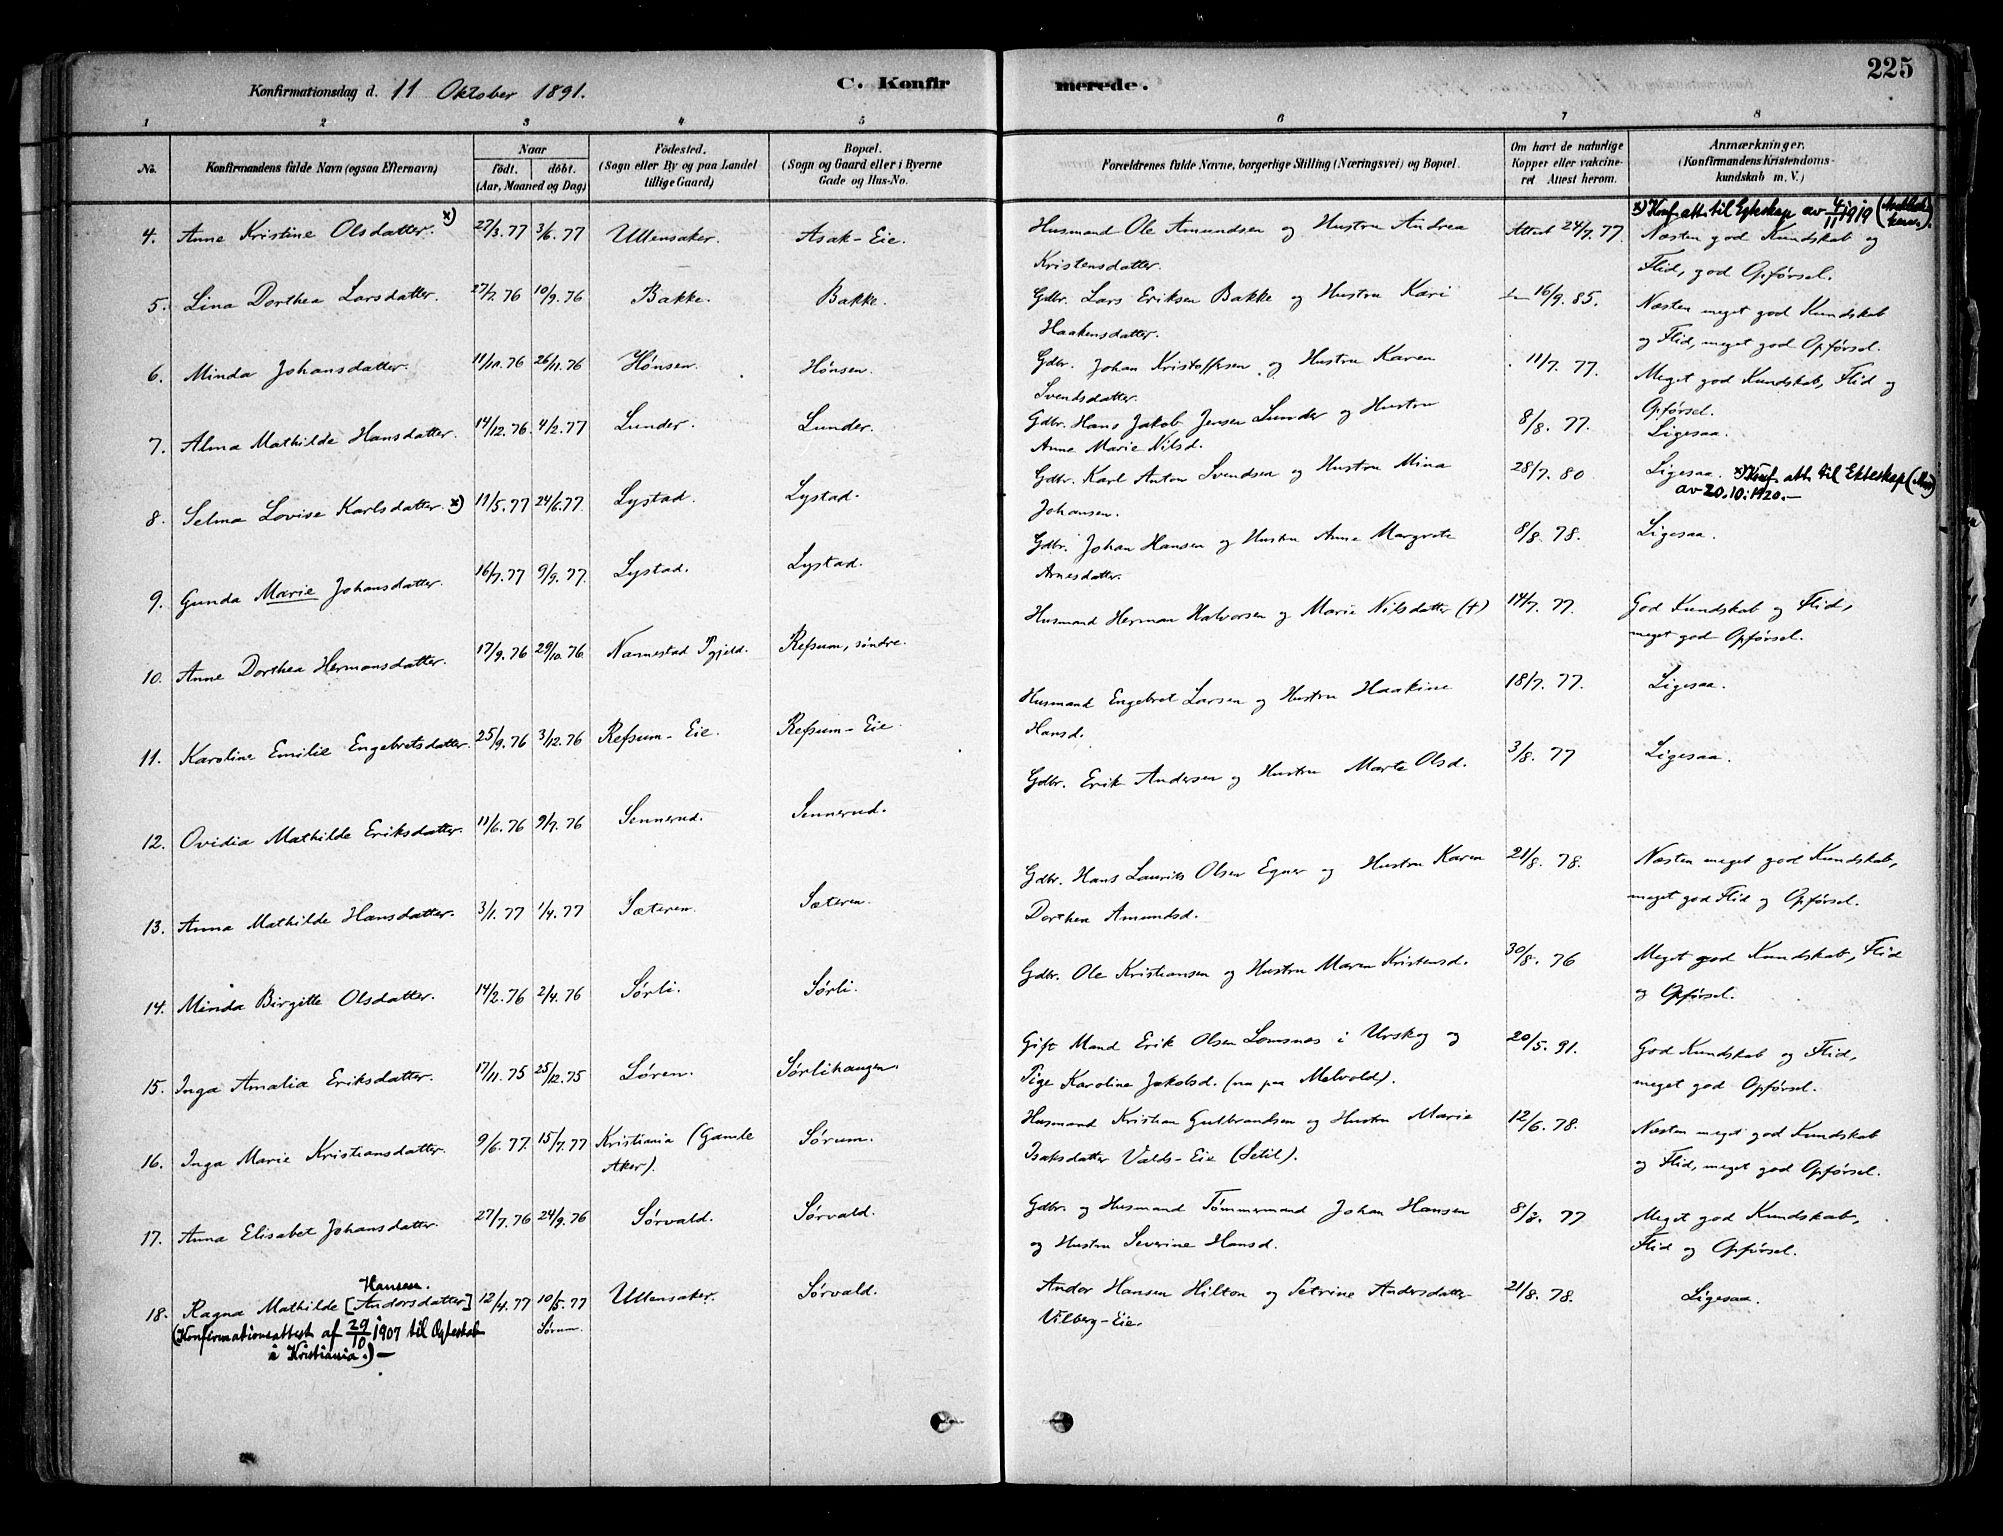 225
Konfirmationsdag d. 11 Oktober 1891.
C. Konfirmerede.
1 2 3 4 5 6 7 8
No.
Konfirmandens fulde Navn (ogsaa Efternavn)
Naar
født. døbt.
(Aar, Maaned og Dag)
Fødested.
(Sogn eller By og paa Landet
tillige Gaard)
Bopæl.
(Sogn og Gaard eller i Byerne
Gade og Hus-No.
Forældrenes fulde Navne, borgerlige Stilling (Næringsvei) og Bopæl.
Om havt de naturlige
Kopper eller vakcine-
ret Attest herom.
Anmærkninger.
(Konfirmandens Kristendoms-
kundskab m. V.)
x) Konf. att. til Egteskap av 4/11 1919
4. Anne Kristine Olsdatter. x) 27/3.77 3/6.77 Ullensaker. Asak-Eie. Husmand Ole Amundsen og Hustru Andrea Attest 24/7.77. Næsten god Kundskab og
Kristensdatter. Flid, god Opførsel.
5. Lina Dorthea Larsdatter. 27/7.76 10/9.76 Bakke. Bakke. Gdbr. Lars Eriksen Bakke og Hustru Kari 16/9.85. Næsten meget god Kundskab
Haakensdatter. og Flid, meget god Opførsel.
6. Minda Johansdatter. 11/11.76 26/11.76 Hønsen. Hønsen. Gdbr. Johan Kristoffersen og Hustru Karen 11/7.77. Meget god Kundskab, Flid og
Svendsdatter. Opførsel.
7. Alma Mathilde Hansdatter. 14/12.76. 4/2.77 Lunder. Lunder. Gdbr. Hans Jakob Jensen Lunder og Hustru 8/8.77. Ligesaa.
Anne Marie Nilsd.
8. Selma Lovise Karlsdatter. x) 11/5.77 24/6.77 Lystad. Lystad. Gdbr. Karl Anton Svendsen og Hustru Mina 28/7.80 Ligesaa. x) Konf. att. til Ekteskap
Johansen. av 20.10.1920.-
9. Gunda Marie Johansdatter. 16/7.77 9/9.77. Lystad. Lystad. Gdbr. Johan Hansen og Hustru Anne Margrete 8/8.78. Ligesaa.
Arnesdatter.
10. Anne Dorthea Hermansdatter. 17/9.76 29/10.76. Nannestad Pgjeld. Refsum, søndre. Husmand Herman Halvorsen og Marie Nilsdatter (+) 14/7.77. God Kundskab og Flid,
meget god Opførsel.
11. Karoline Emilie Engebretsdatter. 25/9.76 3/12.76 Refsum-Eie. Refsum-Eie. Husmand Engebret Larsen og Hustru Haakine 18/7.77. Ligesaa.
Hansd.
12. Ovidia Mathilde Eriksdatter. 11/6.76 9/7.76 Sennerud. Sennerud. Gdbr. Erik Andersen og Hustru Marte Olsd. 3/8.77 Ligesaa.
13. Anna Mathilde Hansdatter. 3/1.77 1/4.77 Sæteren. Sæteren. Gdbr. Hans Laurits Olsen Egner og Hustru Karen 21/8.78. Næsten meget god Kundskab,
Dorthea Amundsd. meget god Flid og Opførsel.
14. Minda Birgitte Olsdatter. 14/2.76 2/4.76 Sørli. Sørli. Gdbr. Ole Kristiansen og Hustru Maren Kristensd. 30/8.76 Meget god Kundskab, Flid
og Opførsel.
15. Inga Amalia Eriksdatter. 17/11.75 25/12.75 Løren. Sørlihaugen. Gift Mand Erik Olsen Lomsnes i Urskog og 20/5.91. God Kundskab og Flid,
Pige Karoline Jakobsd. (nu paa Melvold). meget god Opførsel.
16. Inga Marie Kristiansdatter. 9/6.77. 15/7.77 Kristiania (Gamle Sørum. Husmand Kristian Gulbrandsen og Hustru Marie 12/6.78. Næsten meget god Kundskab
Aker). Isaksdatter Valds-Eie (Setil). og Flid, meget god Opførsel.
17. Anna Elisabet Johansdatter. 27/7.76 24/9.76 Sørvald. Sørvald. Gdbr. og Husmand Tømmermand Johan Hansen 8/8.77 Meget god Kundskab,
og Hustru Severine Hansd. Flid og Opførsel.
Hansen.
18. Ragna Mathilde [Andorsdatter] 12/4.77 10/5.77 Ullensaker. Sørvald. Andor Hansen Hilton og Petrine Andersdatter 21/8.78. Ligesaa.
Sørum. Vilberg-Eie.
(Konfirmationsattest af 29/10 1907 til Egteskab
i Kristiania.)-